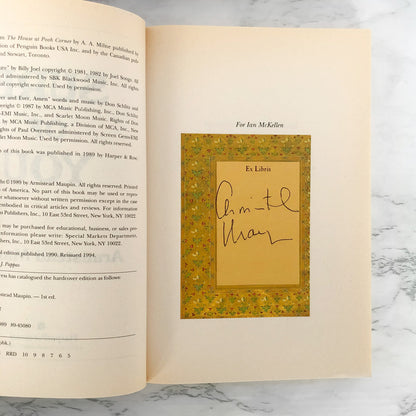 m The House at Pooh Corner by A. A. Milne published by
ion of Penguin Books USA Inc. and by the Canadian pub-
nd Stewart, Toronto.
es" by Billy Joel copyright © 1981, 1982 by Joel Songs. All
d administered by SBK Blackwood Music, Inc. All rights
copyright secured. Used by permission.
ver and Ever, Amen" words and music by Don Schlitz and
right © 1987 by MCA Music Publishing, Inc., Don Schlitz
EMI Music, Inc., and Scarlet Moon Music. Rights of Don
y MCA Music Publishing, a Division of MCA, Inc., New
s of Paul Overstreet administered by Screen Gems-EMI
let Moon Music. Used by permission.
n of this book was published in 1989 by Harper & Row,
©1989 by Armistead Maupin. All rights reserved. Printed
of America. No part of this book may be used or repro-
without written permission except in the case
embodied in critical articles and reviews. For information
Publishers, Inc., 10 East 53rd Street, New York, NY 10022.
y be purchased for educational, business, or sales pro-
information please write: Special Markets Department,
rs, Inc., 10 East 53rd Street, New York, NY 10022.
al edition published 1990. Reissued 1994.
J. Pappas
ress has catalogued the hardcover edition as follows:
istead Maupin. — 1st ed.
989 89-45080
(pbk.)
RRD 10 9 8 7 6 5
For Ian McKellen
Ex Libris
Armistead
Maupin